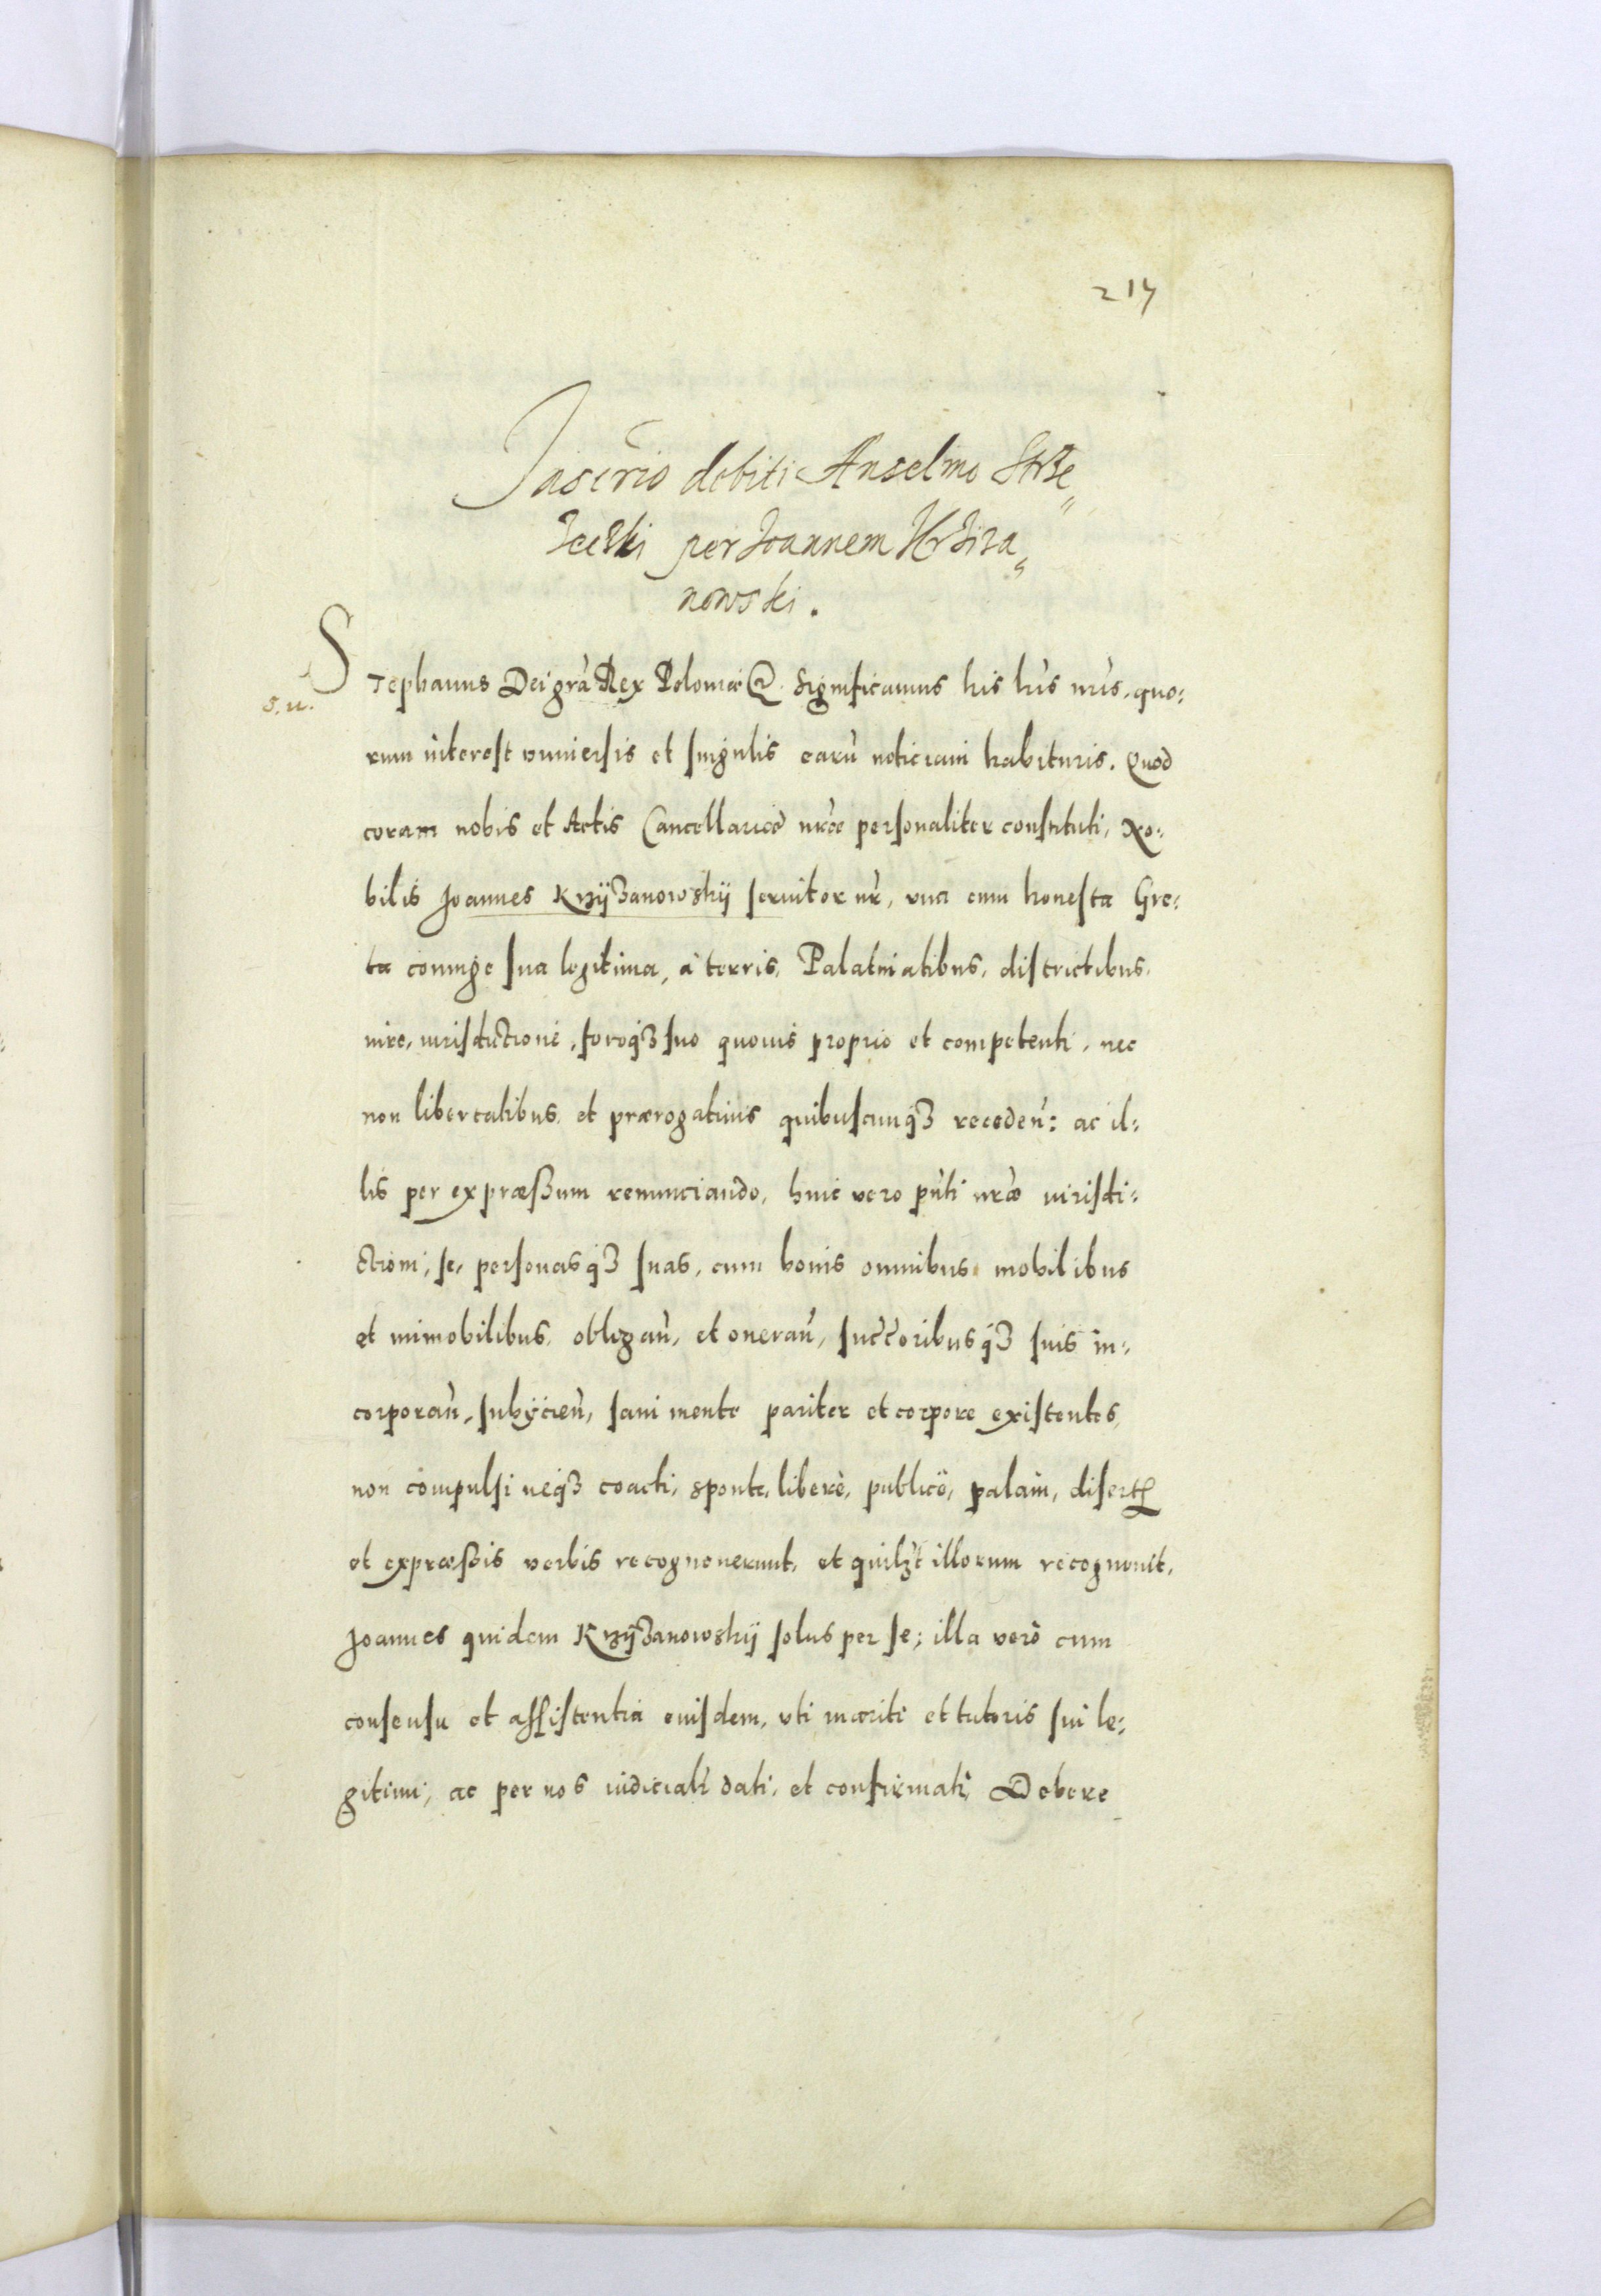 217
Inscrio debiti Anselmo Strze„
lcelski per Joannem Krziza„
nowski.
STephanus Dei grã Rex Poloniæ &. Significamus his lrĩs nrĩs. quo:
rum interest vniuersis et singulis earũ noticiam habituris. Quod
coram nobis et Actis Cancellariæ nr̃æ personaliter constituti, No:
s. u.
bilis Joannes Krzÿżanowskÿ seruitor nr̃, vna cum honesta Gre:
ta coniuge sua legitima, à terris, Palatinatibus, districtibus,
iure, iurisdictione, foroq3 suo quouis proprio et competenti, nec
non libertatibus et prærogatiuis quibuscunq3 receden̄: ac il:
lis per expræssum renunciando, huic vero pñti nr̃æ iurisdi:
ctioni, se, personasq3 suas, cum bonis omnibus mobilibus
et immobilibus, obligan̄, et oneran̄, succ̃oribusq3 suis in:
corporan̄, subÿcien̄, sani mente pariter et corpore existentes,
non compulsi neq3 coacti, sponte, liberè, publicè, palàm, disertis
et expræssis verbis recognouerunt, et quilz̃t illorum recognouit,
Joannes quidem Krzÿżanowskÿ solus per se; illa verò cum
consensu et assistentia eiusdem, vti mariti et tutoris sui le:
gitimi, ac per nos iudicialr̃ dati, et confirmati, Debere